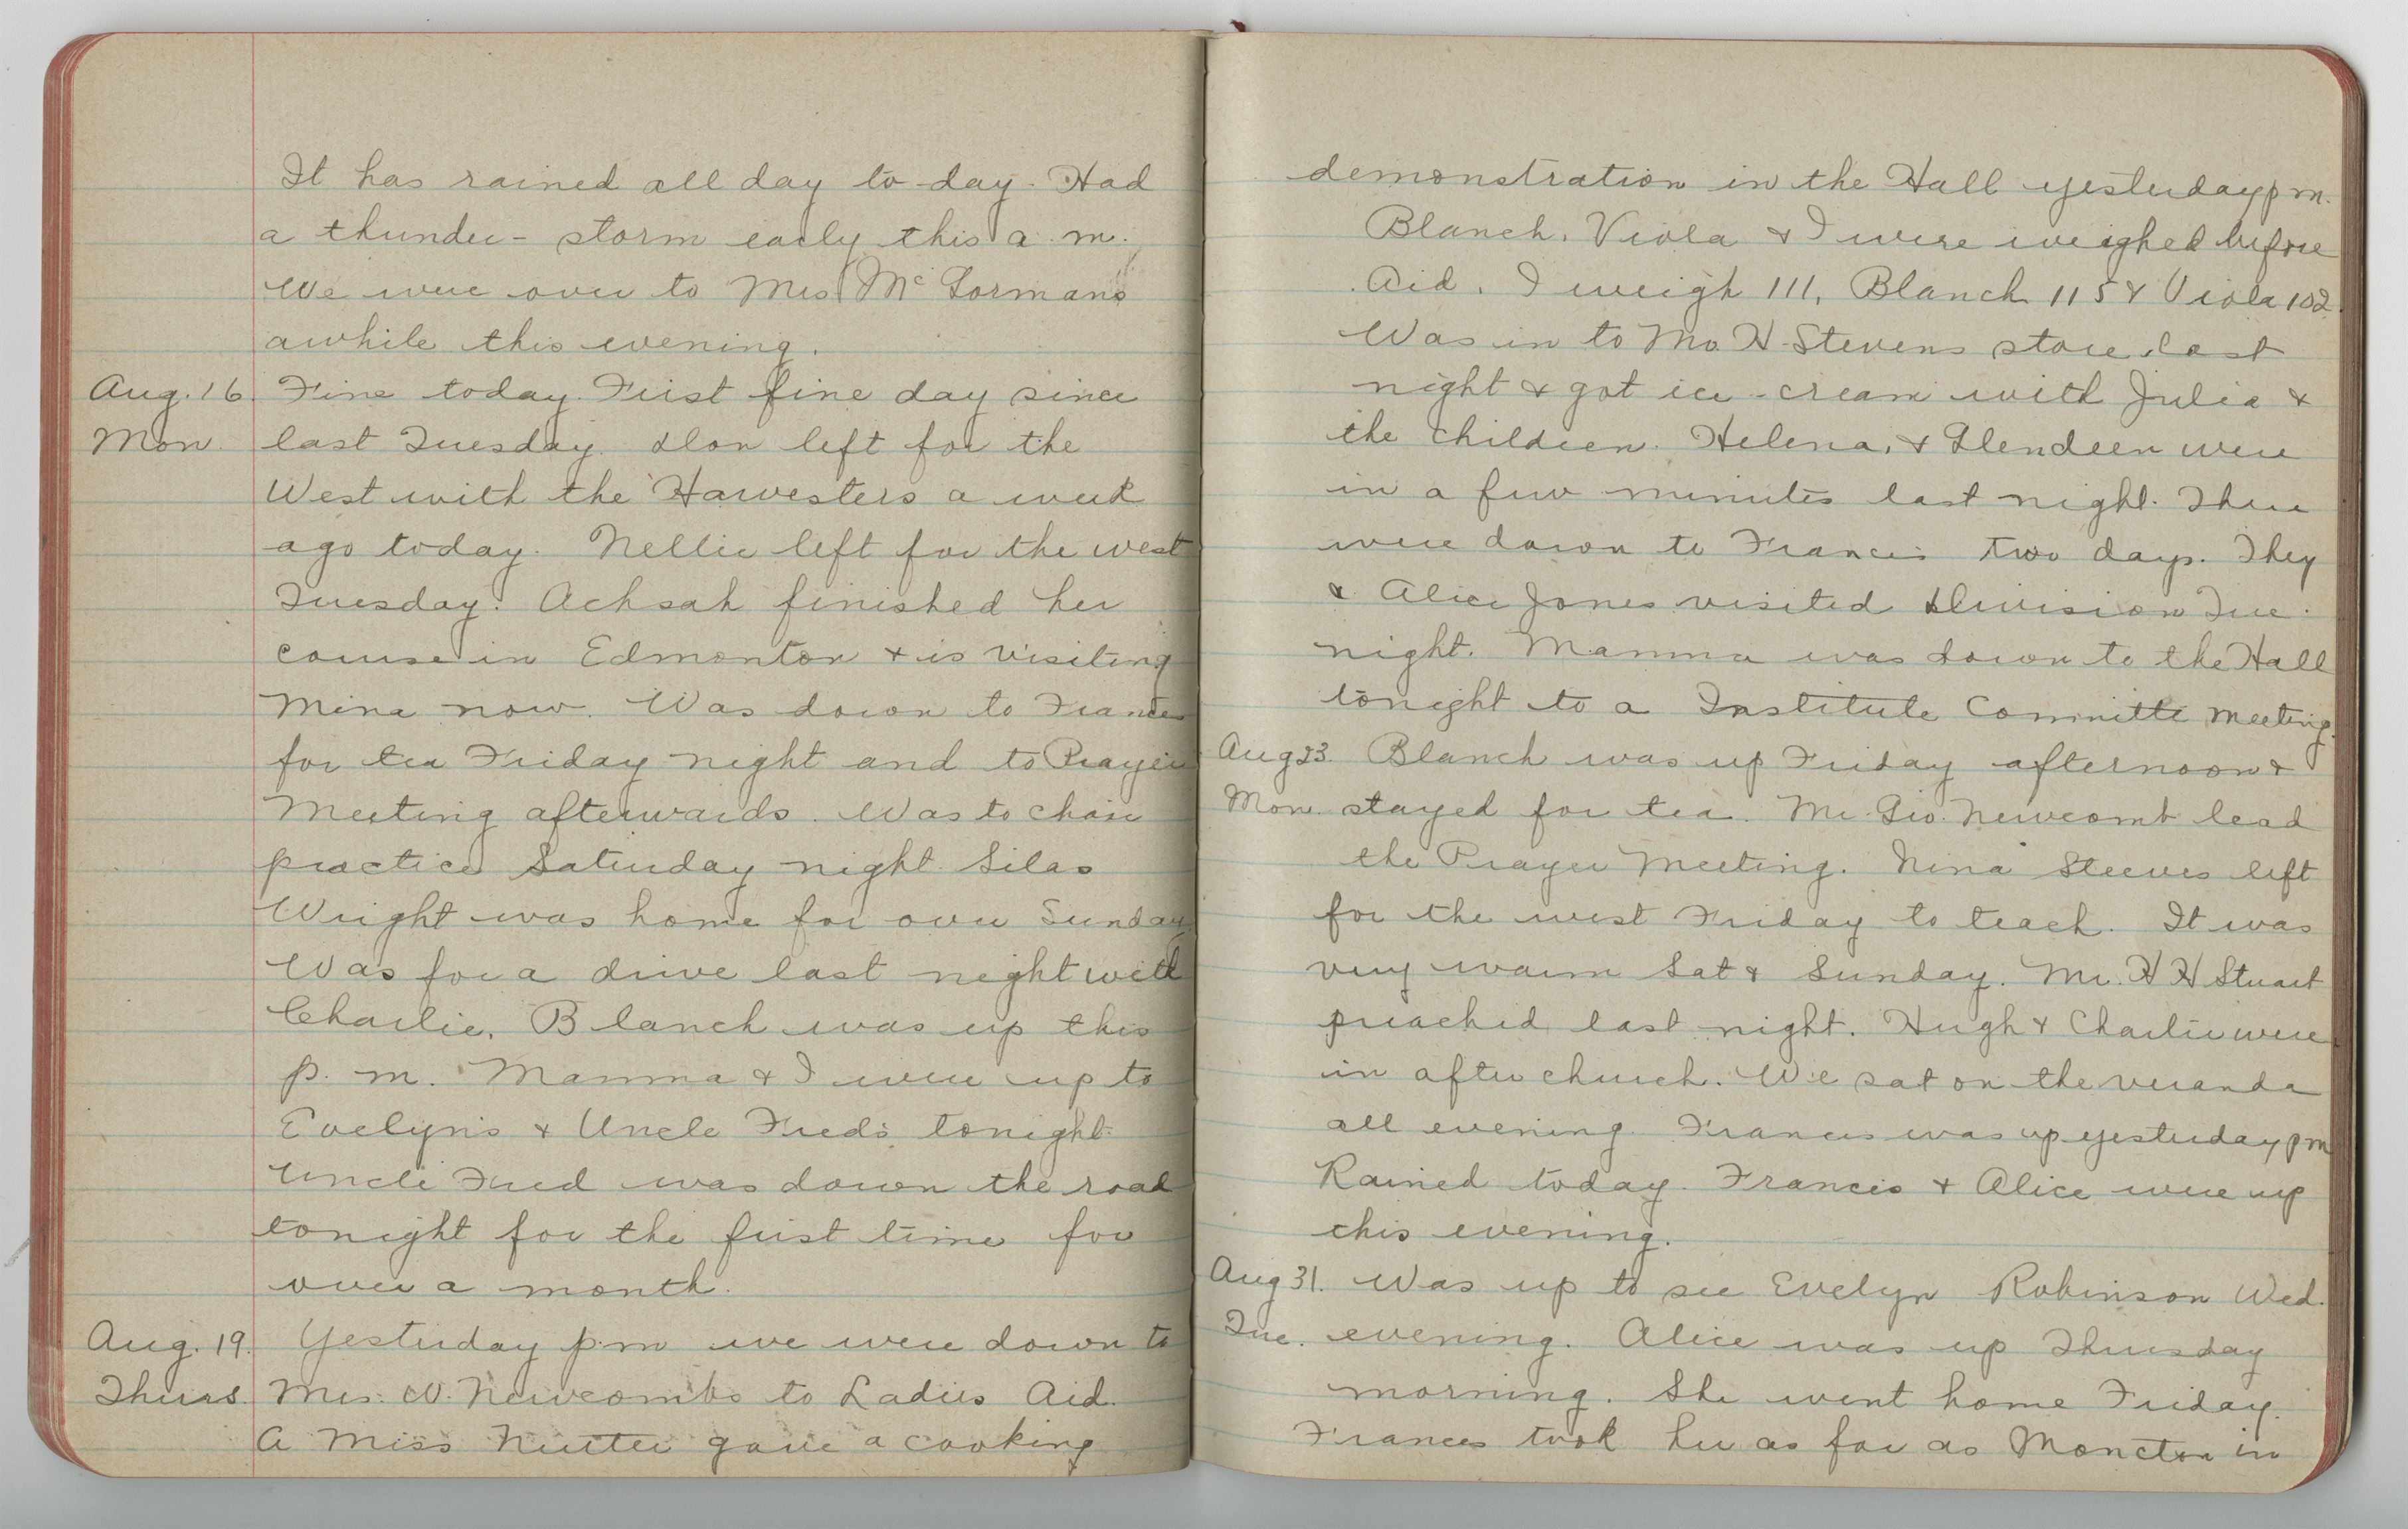 It has rained all day to-day. Had
a thunder-storm early this a.m.
We were over to Mrs McGormans
awhile this evening.
Aug. 16 Fine today. First fine day since
Mon. last Tuesday. Don left for the
West with the Harvesters a week
ago today. Nellie left for the west
Tuesday. Achsah finished her
course in Edmonton & is visiting
Mina now. Was down to Frances
for tea Friday night and to Prayer
Meeting afterwards. Was to choir
practice Saturday night. Silas
Wright was home for over Sunday.
Was for a drive last night with
Charlie. Blanch was up this
p.m. Mamma & I were up to
Evelyn's & Uncle Fred's tonight.
Uncle Fred was down the road
tonight for the first time for
over a month.
Aug. 19. Yesterday p.m we were down to
Thurs. Mrs. W. Newcombs to Ladies Aid.
A Miss Nutter gave a cooking
demonstration in the Hall yesterday p m.
Blanch, Viola & I were weighed before
Aid. I weigh 111, Blanch 115 & Viola 102.
Was in to H. Stevens store last
night & got ice-cream with Julia &
the children. Helena, & Glendeen were
in a few minutes last night. There
were down to Frances two days. They
& Alice Jones visited Division Tue.
night. Mamma was down to the Hall
tonight to a Institute Committe meeting.
Aug 23. Blanch was up Friday afternoon &
Mon. stayed for tea. Mr. Geo. Newcomb lead
the Prayer Meeting. Nina Steeves left
for the west Friday to teach. It was
very warm Sat & Sunday. Mr. H H Stuart
preached last night. Hugh & Charlie were
in after church. We sat on the veranda
all evening. Frances was up yesterday p m
Rained today. Frances & Alice were up
this evening.
Aug 31. Was up to see Evelyn Robinson Wed.
Tue. evening. Alice was up Thursday
morning. She went home Friday.
Frances took her as far as Moncton in